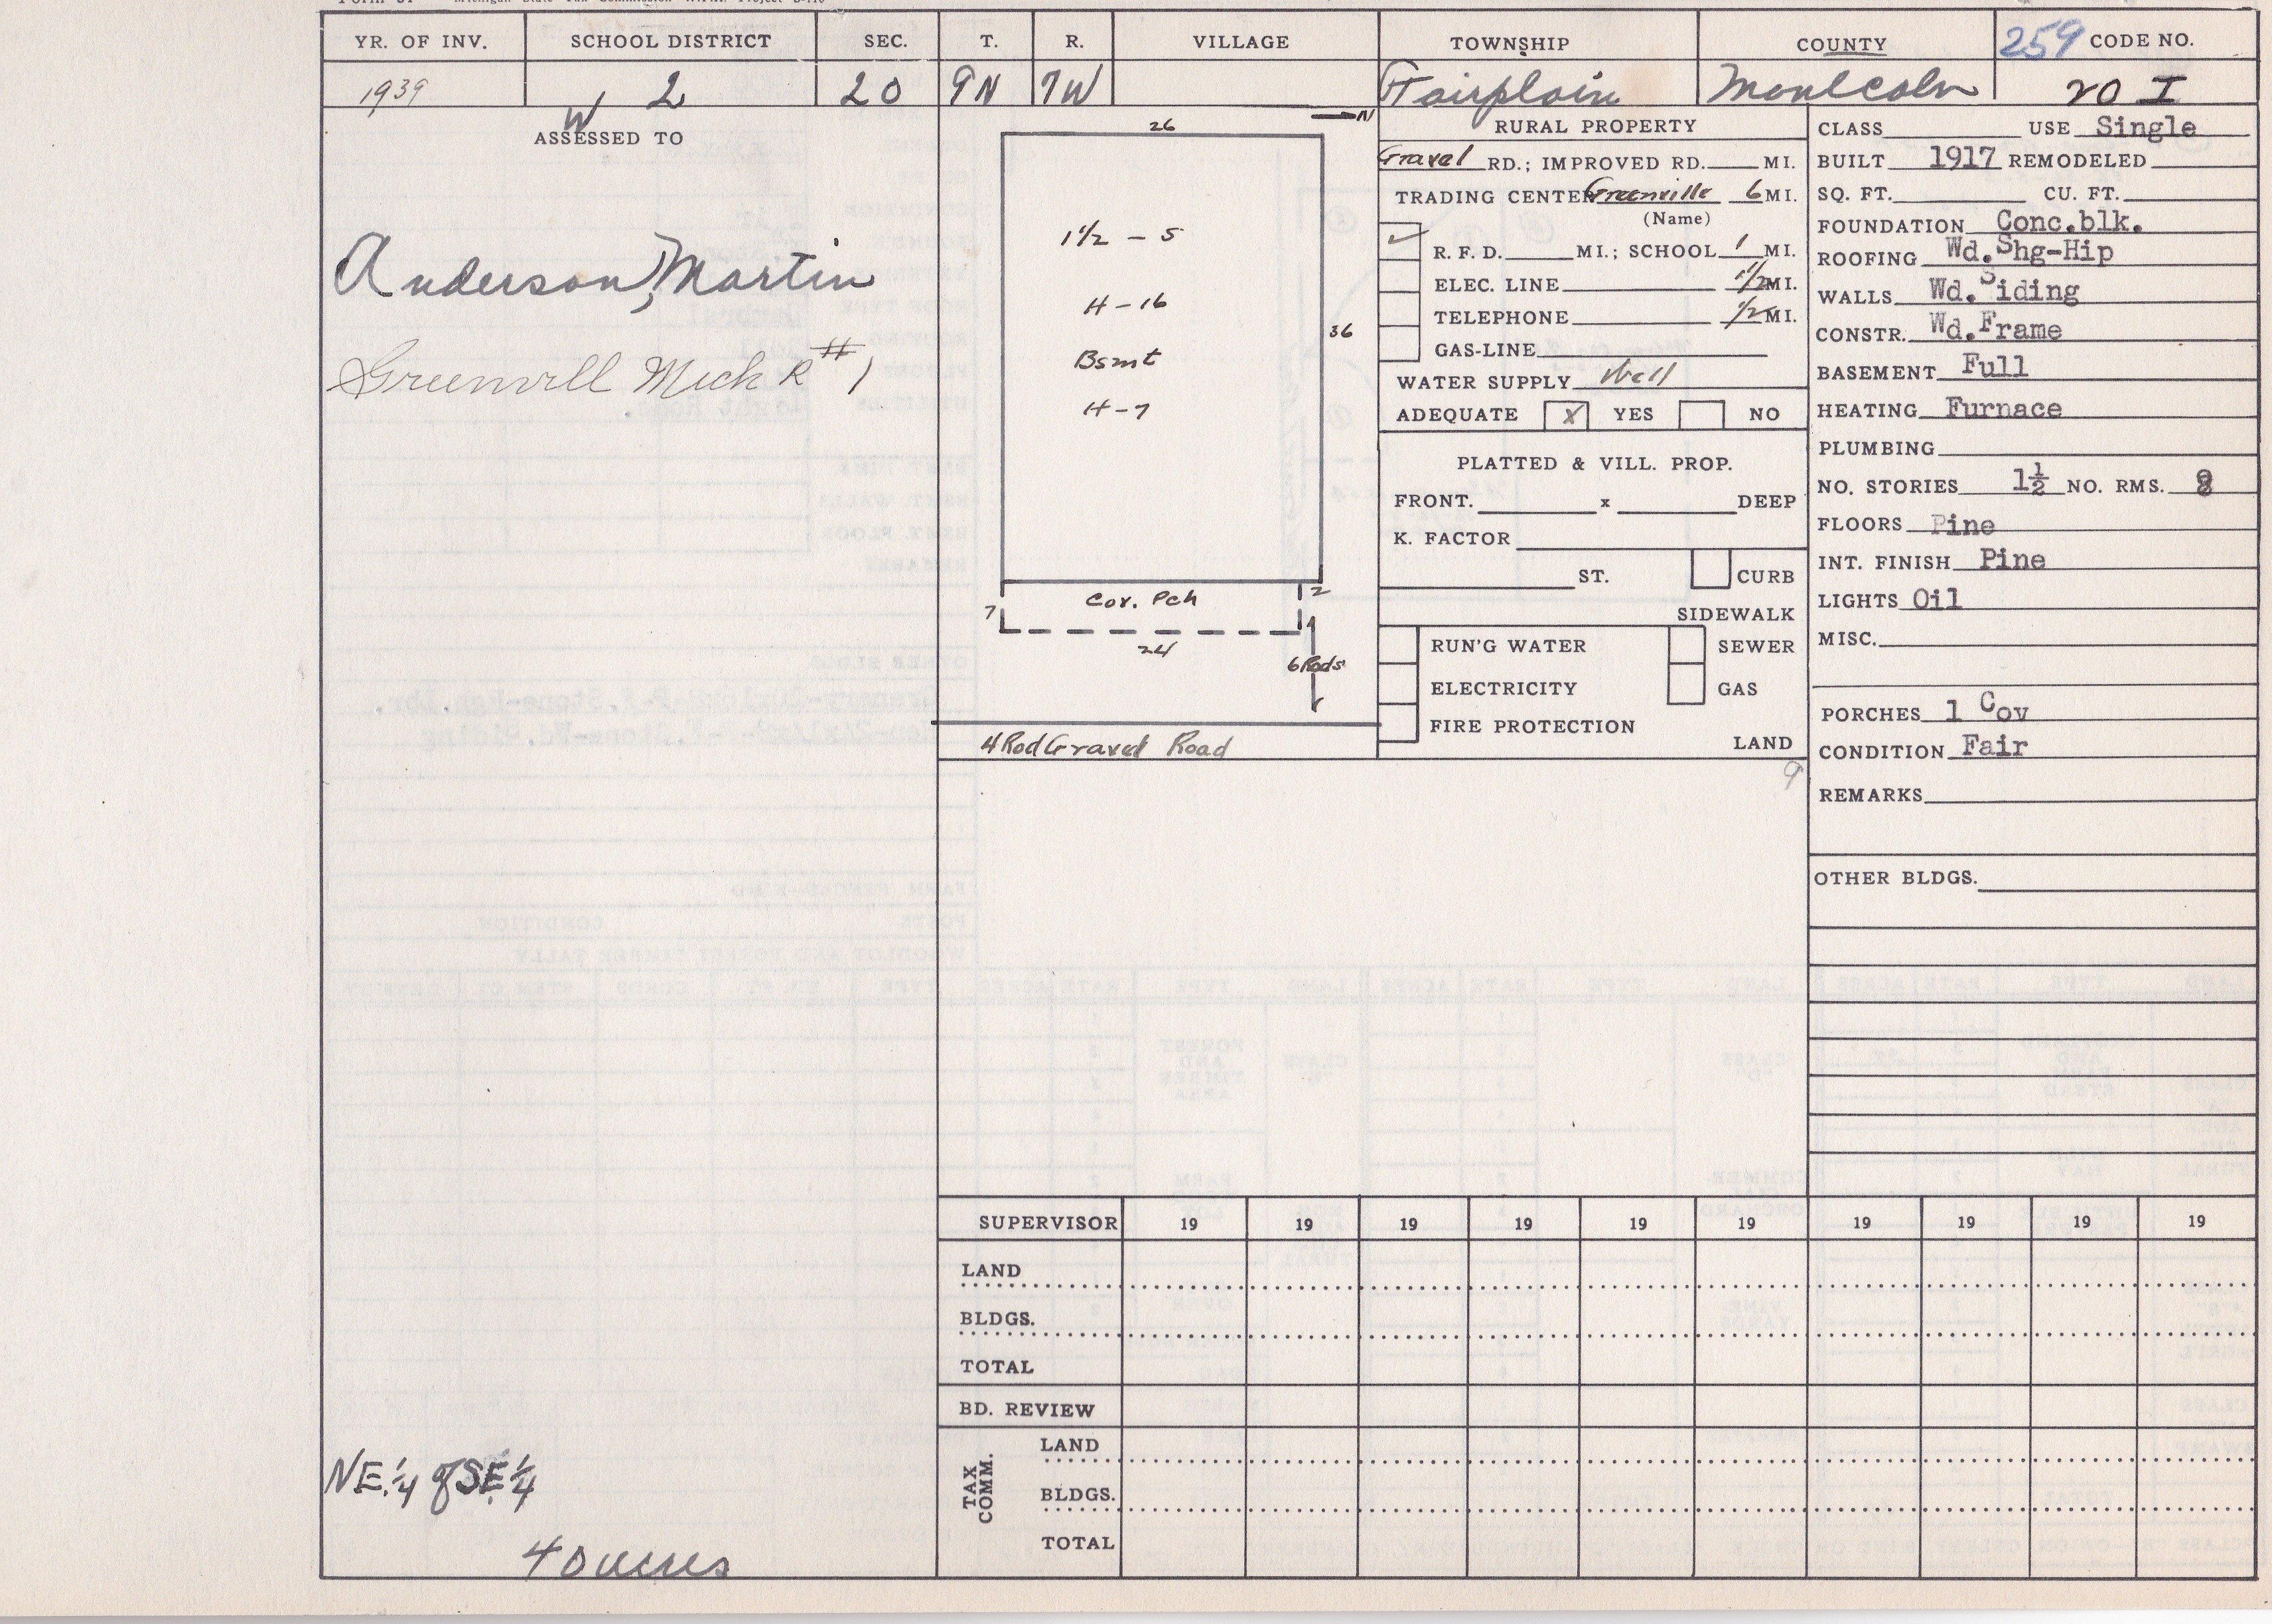 Michigan State Tax Commission
YR. OF INV. SCHOOL DISTRICT SEC. T. R. VILLAGE TOWNSHIP COUNTY 259 CODE NO.
1939 W 2 20 9N 7W Fairplain Montcalm 20 I
ASSESSED TO
Anderson, Martin
Greenvill Mich R #1
NE 1/4 of SE 1/4
40 acres
N
26
1 1/2 - S
H-16
Bsmt
H-7
36
Cov. Pch
7
2
24
6 Rods
4 Rod Gravel Road
RURAL PROPERTY
Gravel RD.; IMPROVED RD. MI.
TRADING CENTER Greenville 6 MI.
(Name)
✓ R. F. D. MI.; SCHOOL 1 MI.
ELEC. LINE 1 1/2 MI.
TELEPHONE 1/2 MI.
GAS-LINE
WATER SUPPLY Well
ADEQUATE X YES NO
PLATTED & VILL. PROP.
FRONT. x DEEP
K. FACTOR
ST. CURB
SIDEWALK
RUN'G WATER SEWER
ELECTRICITY GAS
FIRE PROTECTION
LAND
9
CLASS USE Single
BUILT 1917 REMODELED
SQ. FT. CU. FT.
FOUNDATION Conc.blk.
ROOFING Wd.Shg-Hip
WALLS Wd.Siding
CONSTR. Wd.Frame
BASEMENT Full
HEATING Furnace
PLUMBING
NO. STORIES 1½ NO. RMS. 8
FLOORS Pine
INT. FINISH Pine
LIGHTS Oil
MISC.
PORCHES 1 Cov
CONDITION Fair
REMARKS
OTHER BLDGS.
SUPERVISOR 19 19 19 19 19 19 19 19 19 19
LAND
BLDGS.
TOTAL
BD. REVIEW
TAX COMM.
LAND
BLDGS.
TOTAL